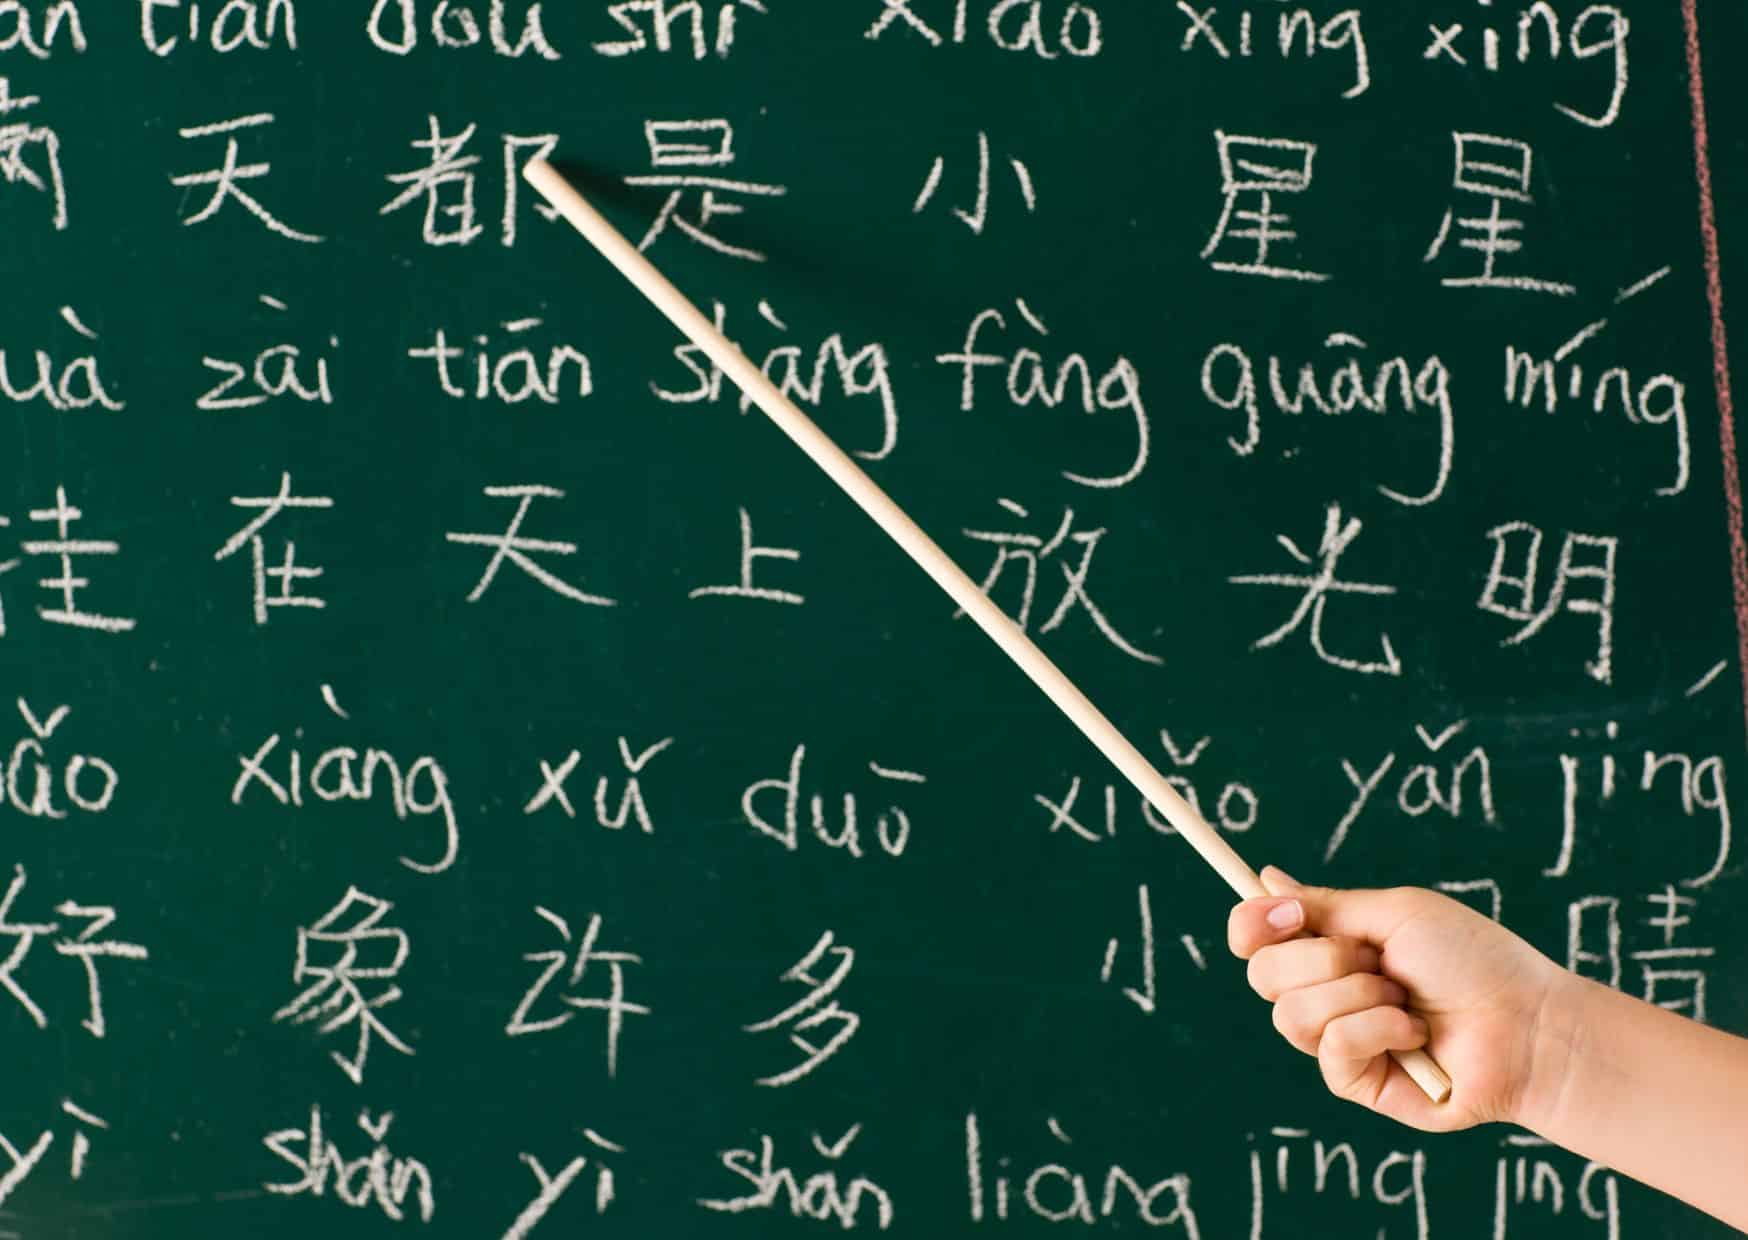 an tian dou shi xiao xing xing
满 天 都 是 小 星 星
uà zài tiān shàng fàng guāng míng
挂 在 天 上 放 光 明
ǎo xiàng xǔ duō xiǎo yǎn jing
好 象 许 多 小 睛
yì shǎn yì shǎn liàng jīng jīng